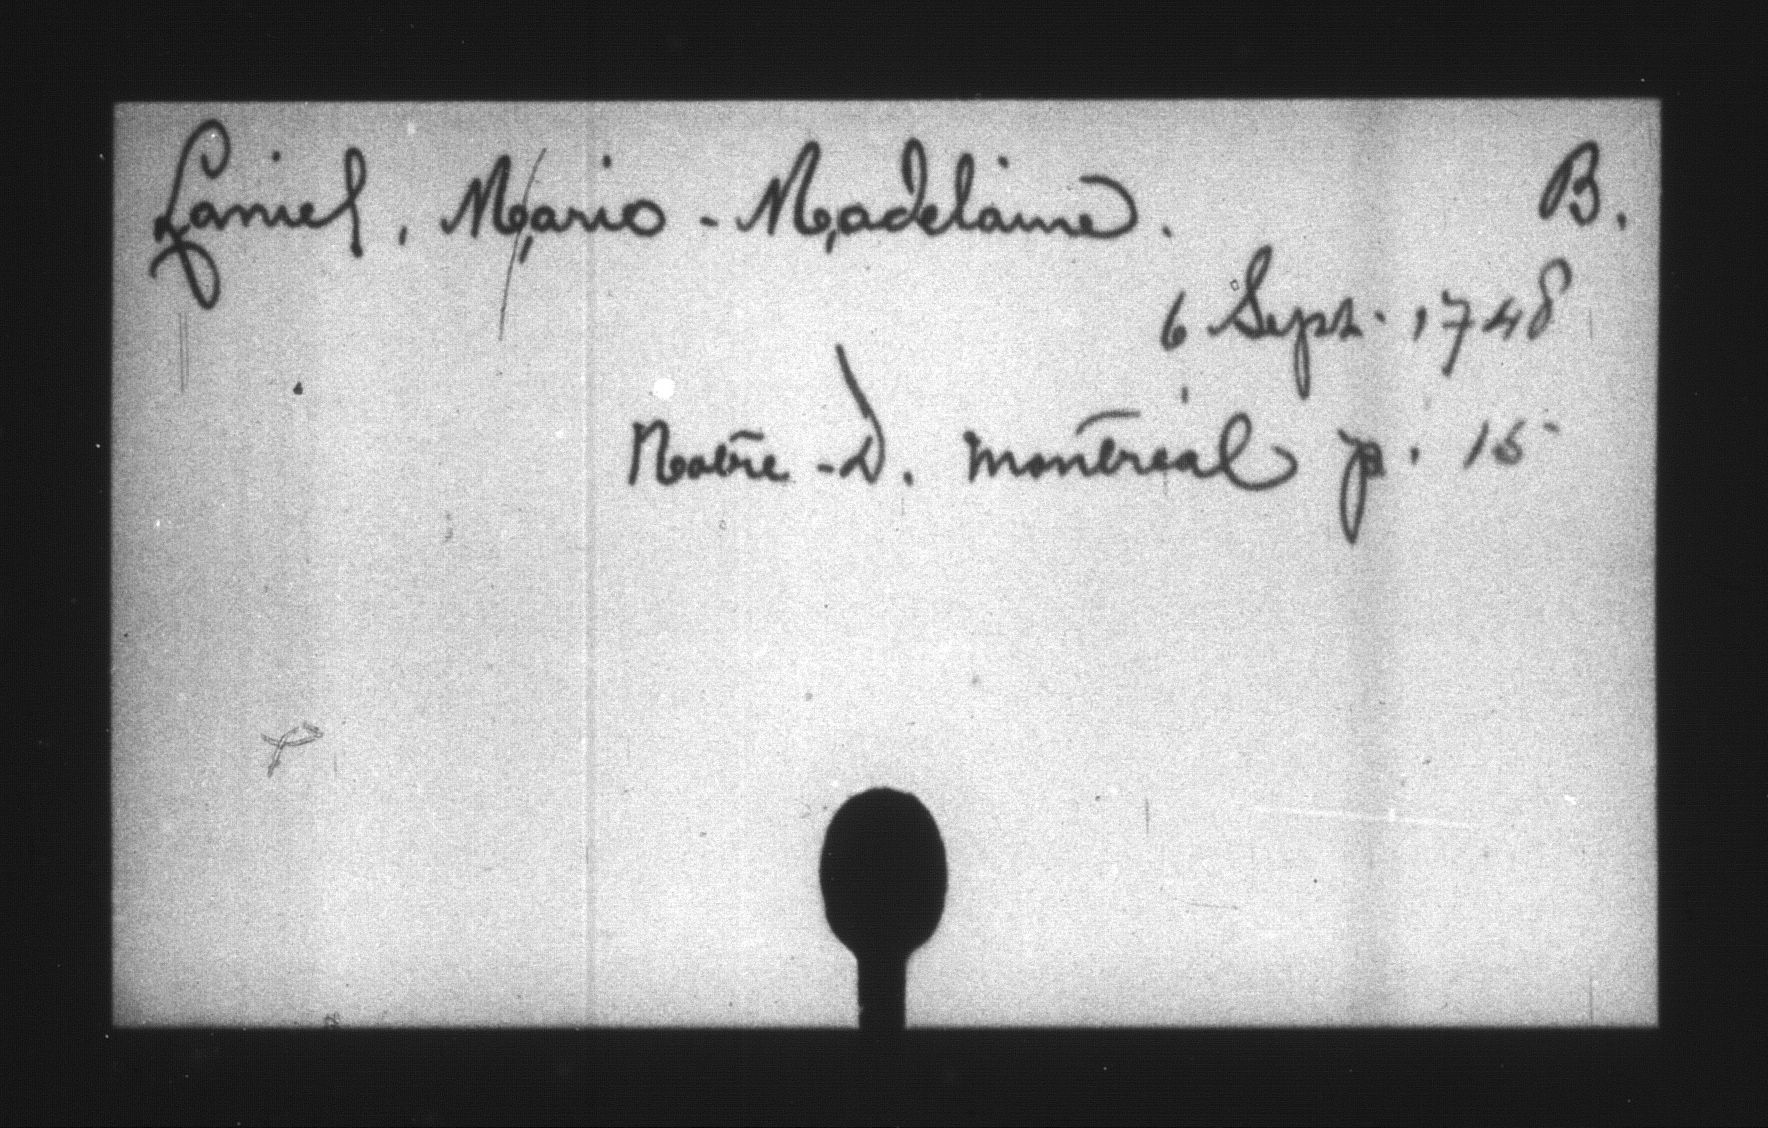 Laniel, Marie-Madelaine. B.
6 Sept. 1748
Notre-D. Montréal p. 15